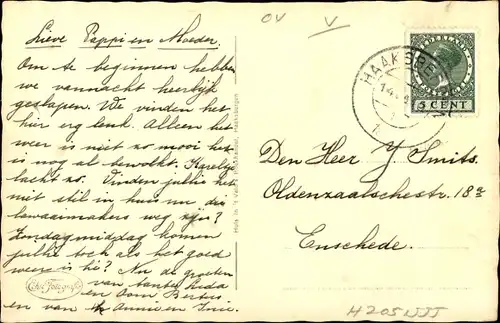 OV V
Lieve Pappi en Moeder.
Om te beginnen hebben
we vannacht heerlijk
geslapen. We vinden het
hier erg leuk. Alleen het
weer is niet zoo mooi het
is nog al bewolkt. Kareltje
lacht zo. Vinden jullie het
niet stil in huis nu die
lawaaimakers weg zijn?
Zondagmiddag komen
jullie toch als het goed
weer is hè? Nu de groeten
van tante
en Oom
en van Annie en
Echte Fotografie
HAAKSBERGEN
NEDERLAND
5 CENT
Den Heer J. Smits.
Oldenzaalschestr. 18a
Enschede.
H205NJJ